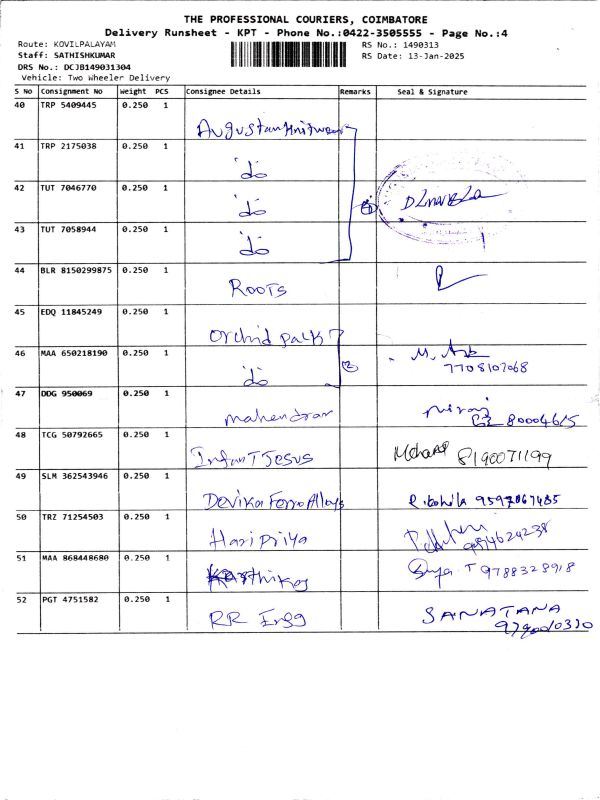 THE PROFESSIONAL COURIERS, COIMBATORE
Delivery Runsheet - KPT - Phone No.:0422-3505555 - Page No.:4
Route: KOVILPALAYAM RS No.: 1490313
Staff: SATHISHKUMAR RS Date: 13-Jan-2025
DRS No.: DCJB149031304
Vehicle: Two Wheeler Delivery
S No Consignment No Weight PCS Consignee Details Remarks Seal & Signature
40 TRP 5409445 0.250 1 Augustan Knitwear
41 TRP 2175038 0.250 1 do
42 TUT 7046770 0.250 1 do
43 TUT 7058944 0.250 1 do
44 BLR 8150299875 0.250 1 Roots
45 EDQ 11845249 0.250 1 Orchid pack
46 MAA 650218190 0.250 1 do 2 M.
7708107068
47 DDG 950069 0.250 1 mahendran
48 TCG 50792665 0.250 1 Infant Jesus 8190071199
49 SLM 362543946 0.250 1 Devika Ferro Alloys 9597067485
50 TRZ 71254503 0.250 1 Hari Priya
51 MAA 868448680 0.250 1 T 9788328918
52 PGT 4751582 0.250 1 RR Engg SANATANA